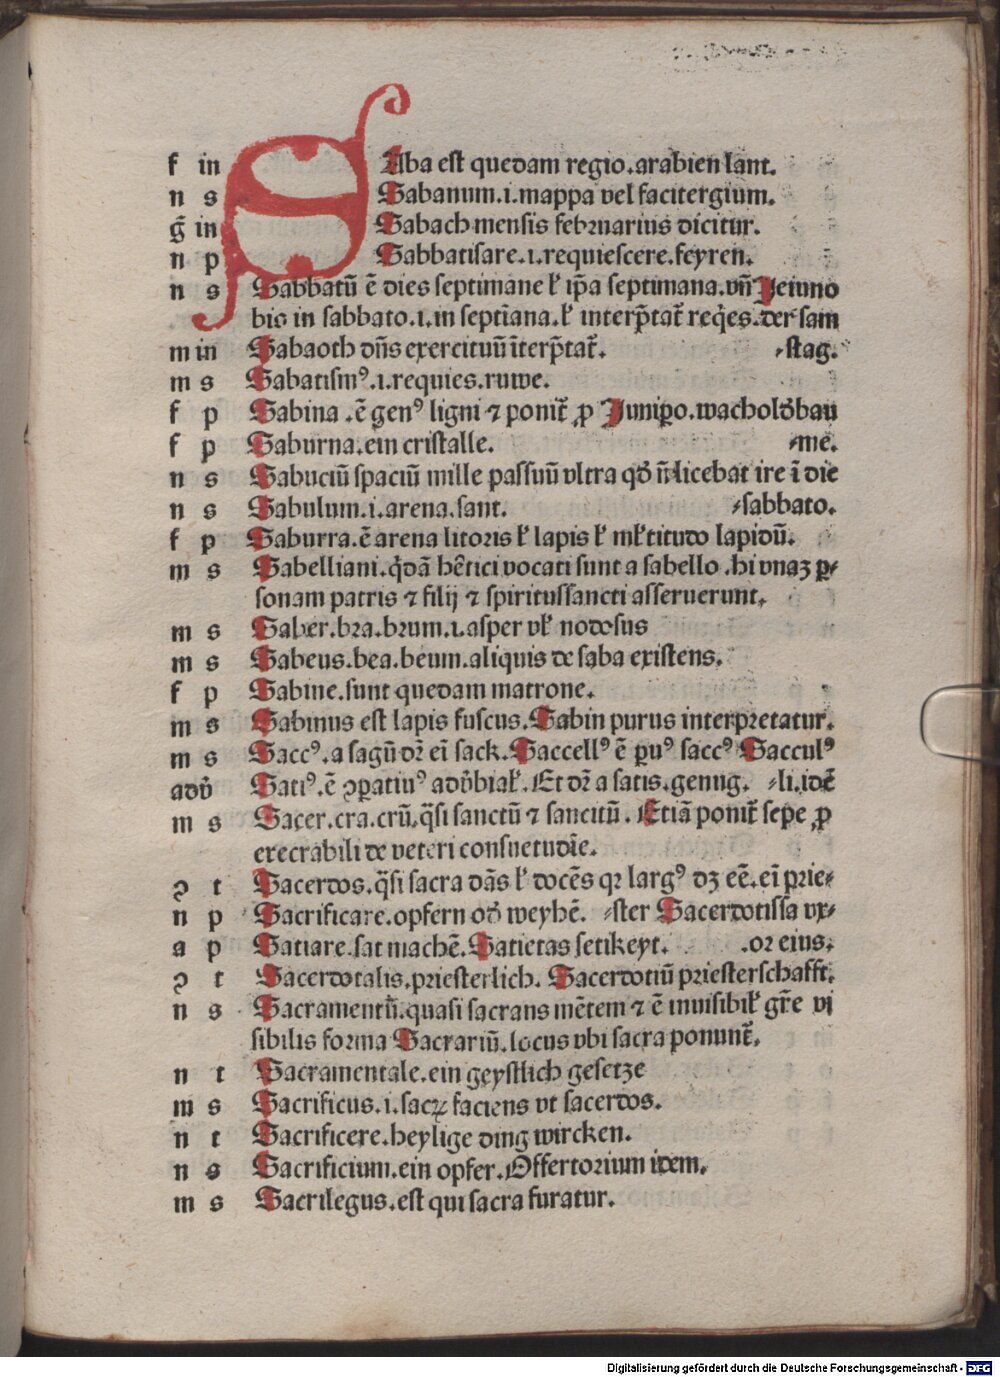 f in SAba est quedam regio.arabien lant.
n s Sabanum.i.mappa vel facitergium.
g̃ in Sabach mensis februarius dicitur.
n p Sabbatisare.i.requiescere.feyren.
n s Sabbatū ē dies septimane ł ip̄a septimana.vn̄ Ieiuno
bis in sabbato.i.in septīana.ł interp̄tat̄ req̇es.der sam
m in Sabaoth dn̄s exercituū īterp̄tat̄. ⸗stag.
m s Sabatismꝰ.i.requies.ruwe.
f p Sabina.ē genꝰ ligni ⁊ ponit̄ ꝓ Iunipo.wacholdbau
f p Saburna.ein cristalle. ⸗me.
n s Sabuciū spaciū mille passuū vltra qd̄ n̄ licebat ire ī die
n s Sabulum.i.arena.sant. ⸗sabbato.
f p Saburra.ē arena litoris ł lapis ł mł titudo lapidū.
m s Sabelliani.q̇dā hētici vocati sunt a sabello.hi vnaʒ ꝑ⸗
sonam patris ⁊ filij ⁊ spiritussancti asseruerunt.
m s Saber.bra.brum.i.asper vł nodosus
m s Sabeus.bea.beum.aliquis de saba existens.
f p Sabine.sunt quedam matrone.
m s Sabinus est lapis fuscus.Sabin purus interpretatur.
m s Saccꝰ.a sagū dr̄ ei sack.Saccellꝰ ē ꝑuꝰ saccꝰ Sacculꝰ
adv̄ Satiꝰ.ē ꝯꝑatiuꝰ adv̄biał.Et dr̄ a satis.genug. ⸗li.idē
m s Sacer.cra.crū.q̄si sanctū ⁊ sancitū.Etiā ponit̄ sepe ꝓ
execrabili de veteri consuetudīe.
ꝯ t Sacerdos.q̄si sacra dās ł docēs qr largꝰ dʒ eē.ei prie⸗
n p Sacrificare.opfern od̄ weyhē. ⸗ster Sacerdotissa vx⸗
a p Satiare.sat machē.Satietas setikeyt. .or eius.
ꝯ t Sacerdotalis.priesterlich.Sacerdotiū priesterschafft.
n s Sacramentū.quasi sacrans mētem ⁊ ē inuisibił gr̄e vi
sibilis forma Sacrariū.locus vbi sacra ponunt̄.
n t Sacramentale.ein geystlich gesetze
m s Sacrificus.i.sacꝝ faciens vt sacerdos.
n t Sacrificere.heylige ding wircken.
n s Sacrificium.ein opfer.Offertorium idem.
m s Sacrilegus.est qui sacra furatur.
Digitalisierung gefördert durch die Deutsche Forschungsgemeinschaft - DFG